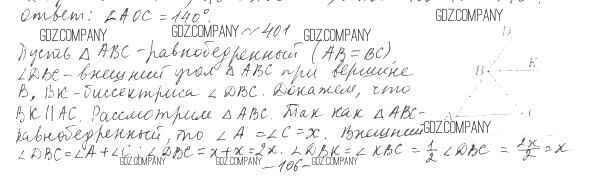 Ответ: ∠AOC = 140°.
GDZ.COMPANY
GDZ.COMPANY № 401 GDZ.COMPANY
Пусть △ABC - равнобедренный (AB = BC)
∠DBC - внешний угол △ABC при вершине
B, BK - биссектриса ∠DBC. Докажем, что
BK || AC. Рассмотрим △ABC. Так как △ABC-
равнобедренный, то ∠A = ∠C = x. Внешний
GDZ.COMPANY
∠DBC = ∠A + ∠C; ∠DBC = x + x = 2x. ∠DBK = ∠KBC = 1/2 ∠DBC = 2x/2 = x
GDZ.COMPANY GDZ.COMPANY GDZ.COMPANY GDZ.COMPANY
-106-
D
B K
A C